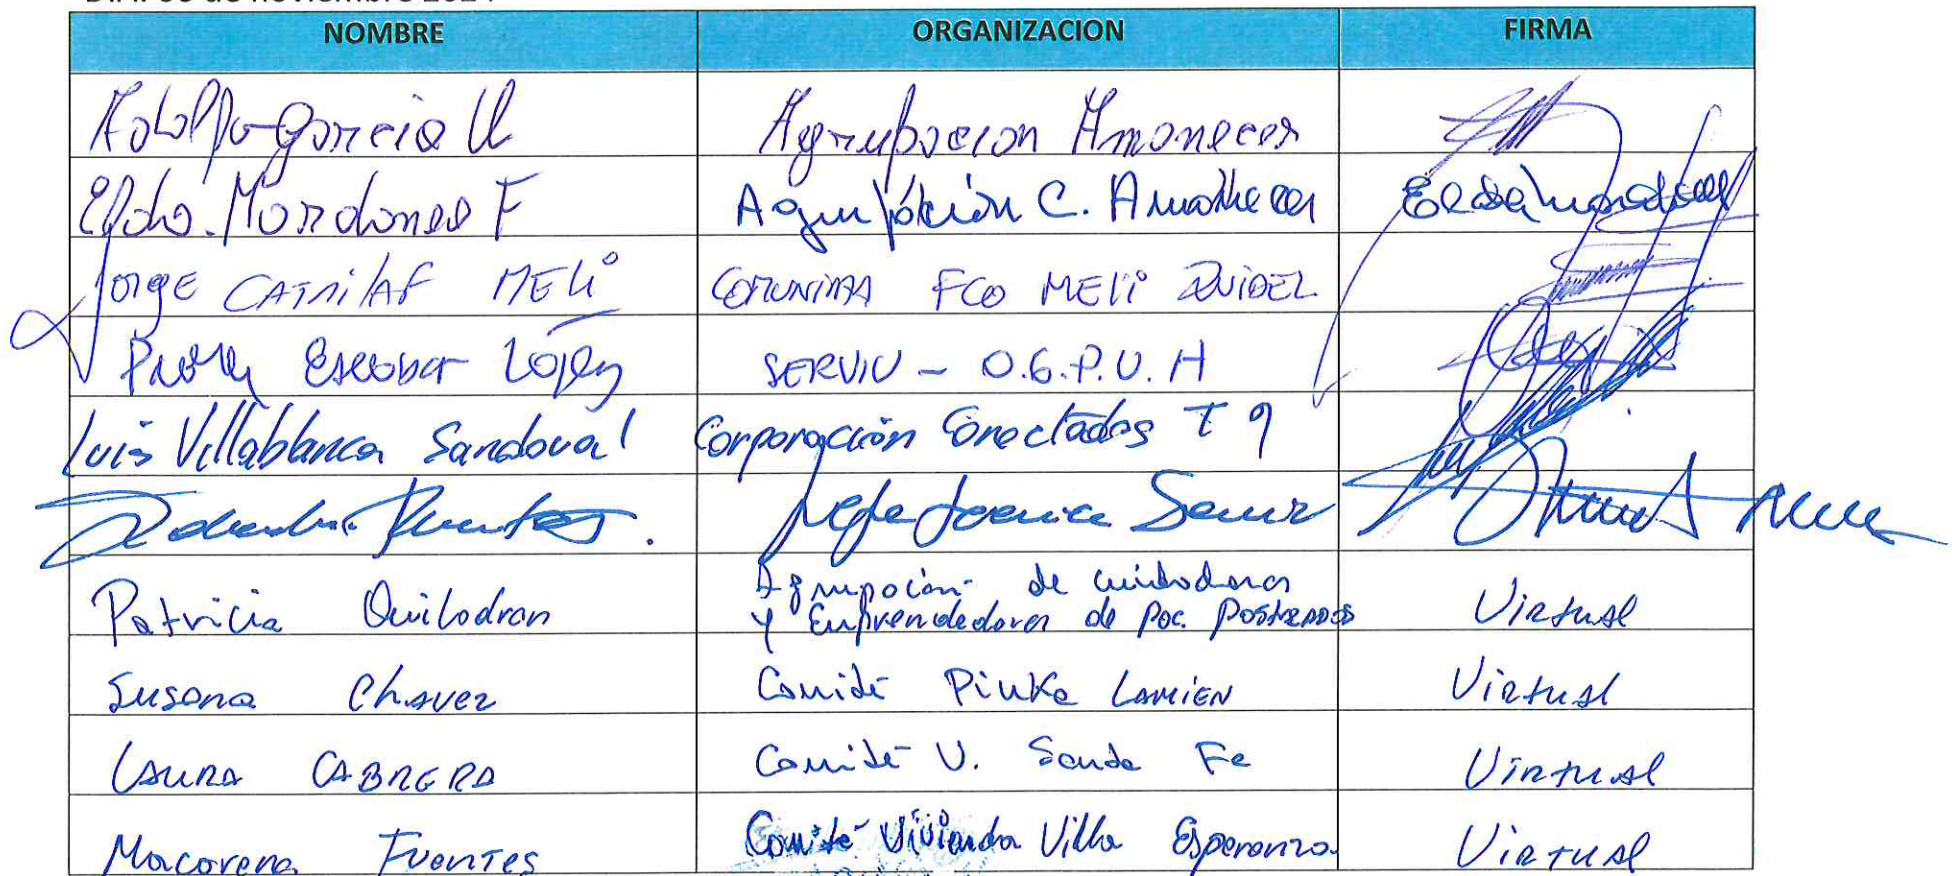 NOMBRE ORGANIZACION FIRMA
Adolfo Garcia U Agrupacion Amanecer
Elda. Mardones F Agrupación C. Amanecer Elda Mardones
Jorge CATRILAF MELI COMUNIDAD FCO MELI QUIDEL
Paola Escobar López SERVIU - O.G.P.U.H
Luis Villablanca Sandoval Corporación Conectados T 9
Fuentes. Jefa Tecnica
Patricia Quilodran Agrupación de cuidadoras
y Emprendedoras de Pac. Postrados Virtual
Susana Chavez Comité Piuke LAMIEN Virtual
LAURA CABRERA Comité V. Santa Fe Virtual
Macarena Fuentes Comité Vivienda Villa Esperanza Virtual